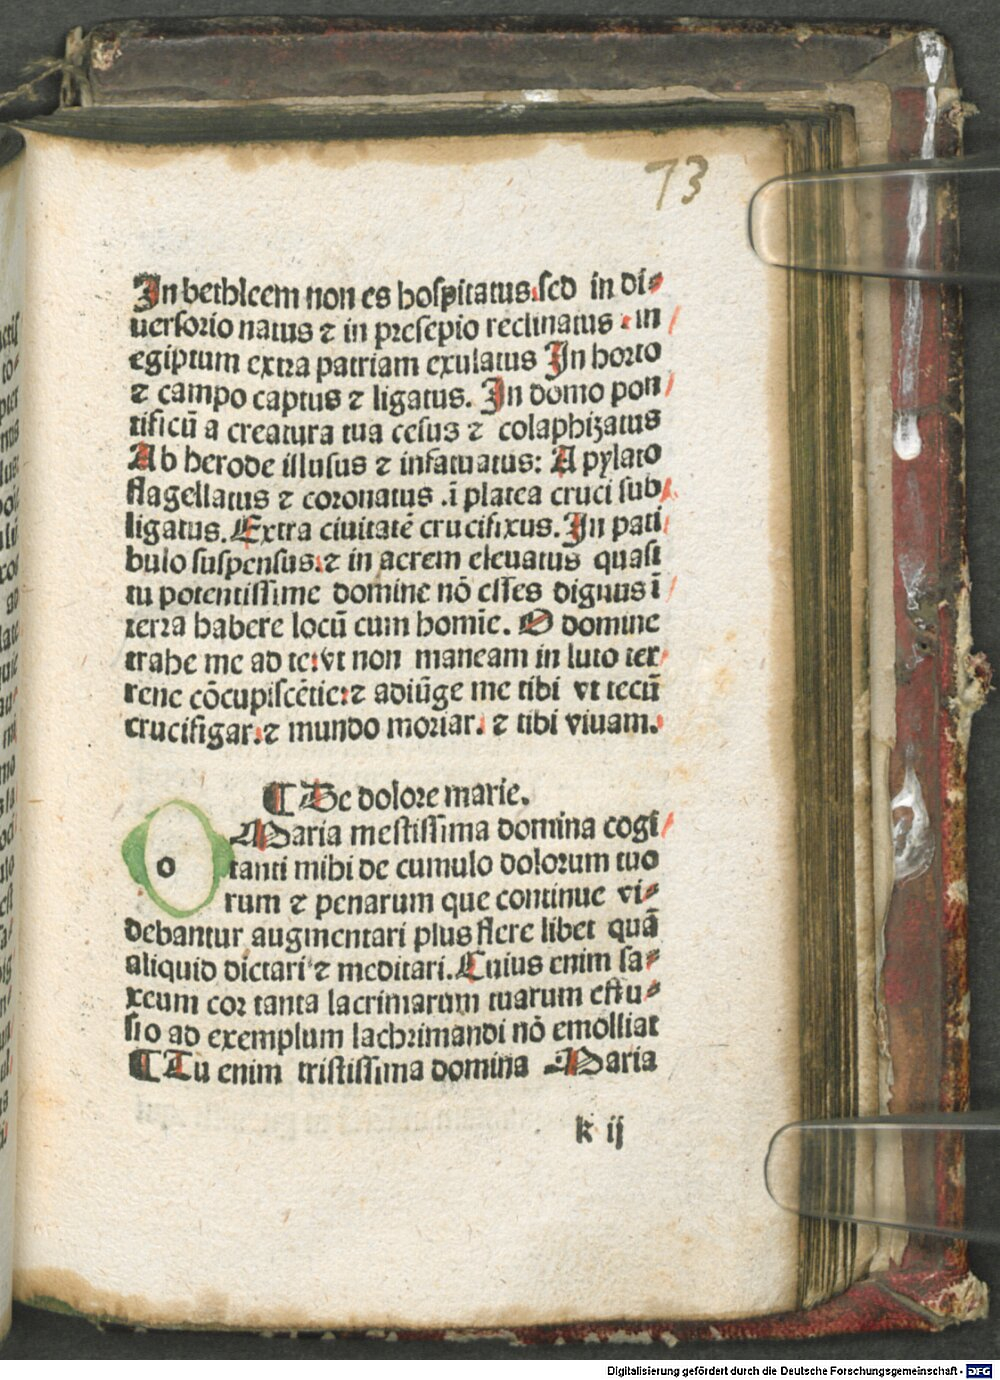 73
In bethleem non es hospitatus. sed in di⸗
uersorio natus ⁊ in presepio reclinatus . in
egiptum extra patriam exulatus In horto
⁊ campo captus ⁊ ligatus. In domo pon
tificū a creatura tua cesus ⁊ colaphizatus
Ab herode illusus ⁊ infatuatus: A pylato
flagellatus ⁊ coronatus .ī platea cruci sub
ligatus. Extra ciuitatē crucifixus. In pati
bulo suspensus. ⁊ in aerem eleuatus quasi
tu potentissime domine nō esses dignus ī
terra habere locū cum homīe. O domine
trahe me ad te: vt non maneam in luto ter
rene cōcupiscētie: ⁊ adiūge me tibi vt tecū
crucifigar. ⁊ mundo moriar. ⁊ tibi viuam.
¶ De dolore marie.
o Maria mestissima domina cogi
tanti mihi de cumulo dolorum tuo
rum ⁊ penarum que continue vi⸗
debantur augmentari plus flere libet quā
aliquid dictari ⁊ meditari. Cuius enim sa⸗
xeum cor tanta lacrimarum tuarum effu⸗
sio ad exemplum lachrimandi nō emolliat
¶ Tu enim tristissima domina Maria
k ij
Digitalisierung gefördert durch die Deutsche Forschungsgemeinschaft - DFG